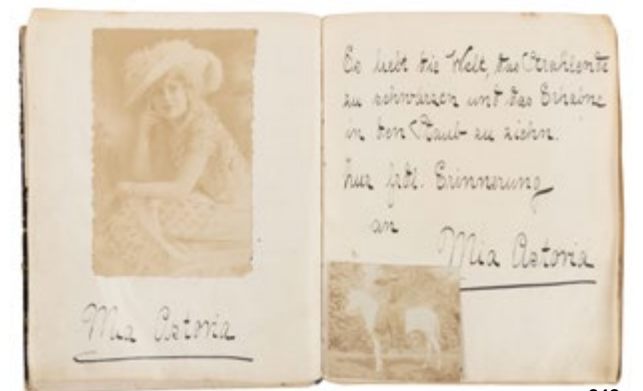 Mia Astoria
Es liebt die Welt, das Strahlende
zu schwärzen und das Erhabne
in den Staub zu ziehn.
Zur frdl. Erinnerung
an
Mia Astoria